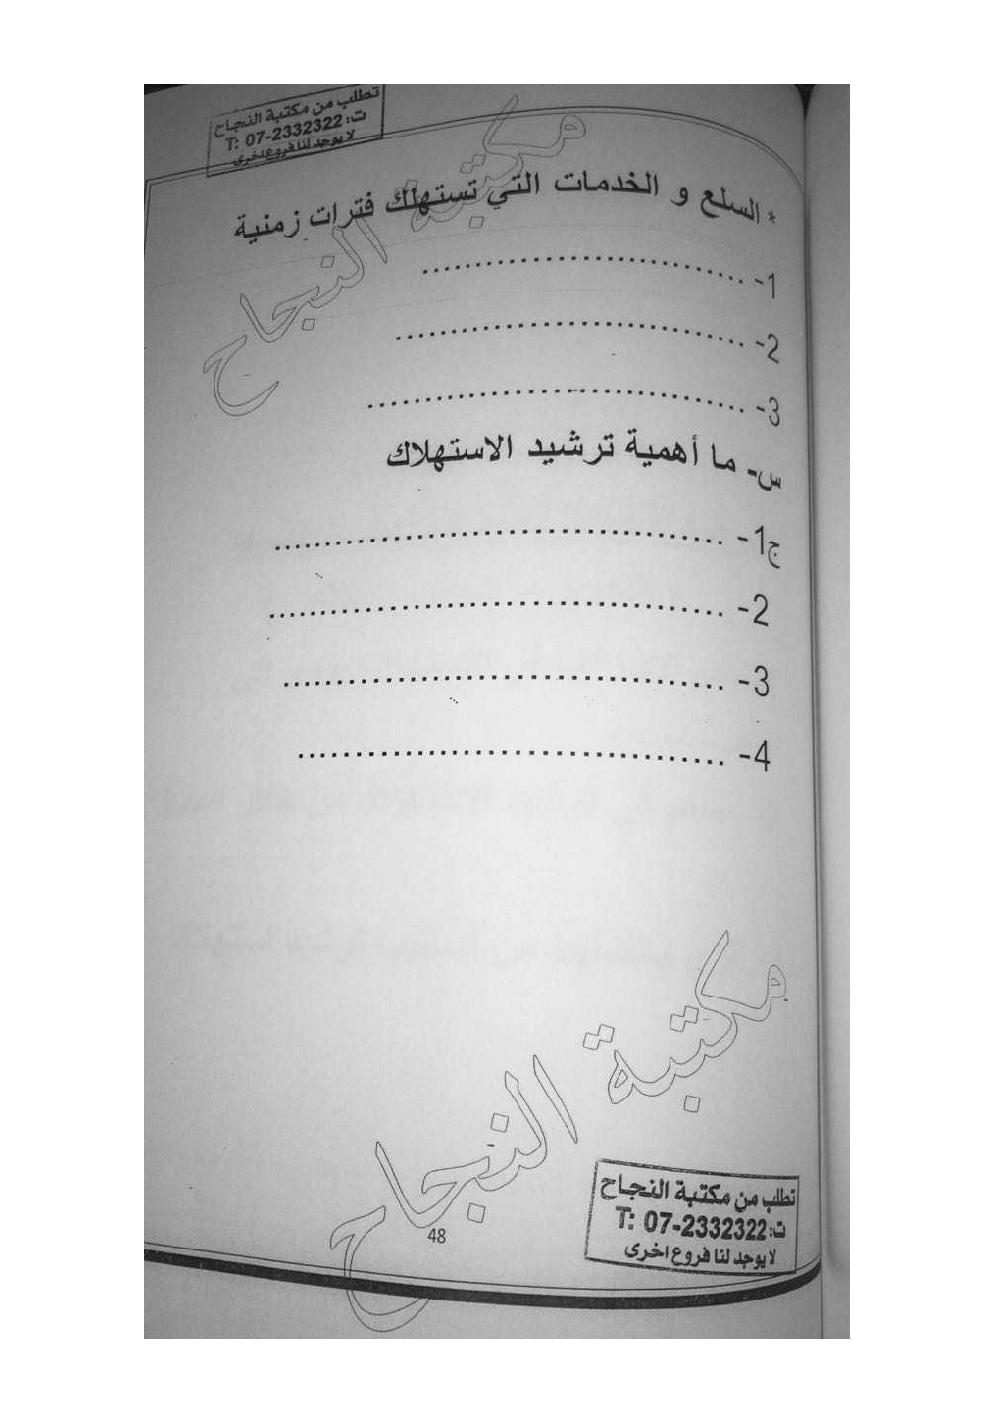 تطلب من مكتبة النجاح
ت: 07-2332322 :T
لا يوجد لنا فروع اخرى
مكتبة النجاح
* السلع و الخدمات التي تستهلك فترات زمنية
1- ..............................
2- ..............................
3- ..............................
س- ما أهمية ترشيد الاستهلاك
ج1- ..............................
2- ..............................
3- ..............................
4- ..............................
مكتبة النجاح
تطلب من مكتبة النجاح
ت: 07-2332322 :T
لا يوجد لنا فروع اخرى
48